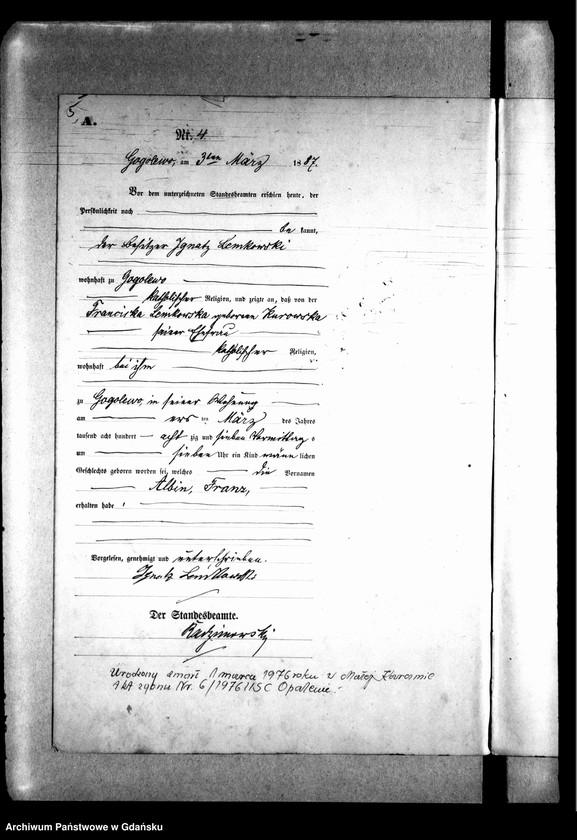 5,
A.
Nr. 4.
Gogolewo, am 3ten März 1887.
Vor dem unterzeichneten Standesbeamten erschien heute, der
Persönlichkeit nach
bekannt,
der Besitzer Ignatz Lemkowski
wohnhaft zu Gogolewo
katholischer Religion, und zeigte an, daß von der
Franciska Lemkowska geborenen Kurowska
seiner Ehefrau
katholischer Religion,
wohnhaft bei ihm
zu Gogolewo, in seiner Wohnung
am ersten März des Jahres
tausend acht hundert achtzig und sieben Vormittags
um sieben Uhr ein Kind männlichen
Geschlechts geboren worden sei, welches die Vornamen
Albin, Franz,
erhalten habe.
Vorgelesen, genehmigt und unterschrieben.
Ignatz Lemkowski
Der Standesbeamte.
Urodzony zmarł 1 marca 1976 roku w Małej
Akt zgonu Nr. 6/1976 USC Opalenie.
Archiwum Państwowe w Gdańsku